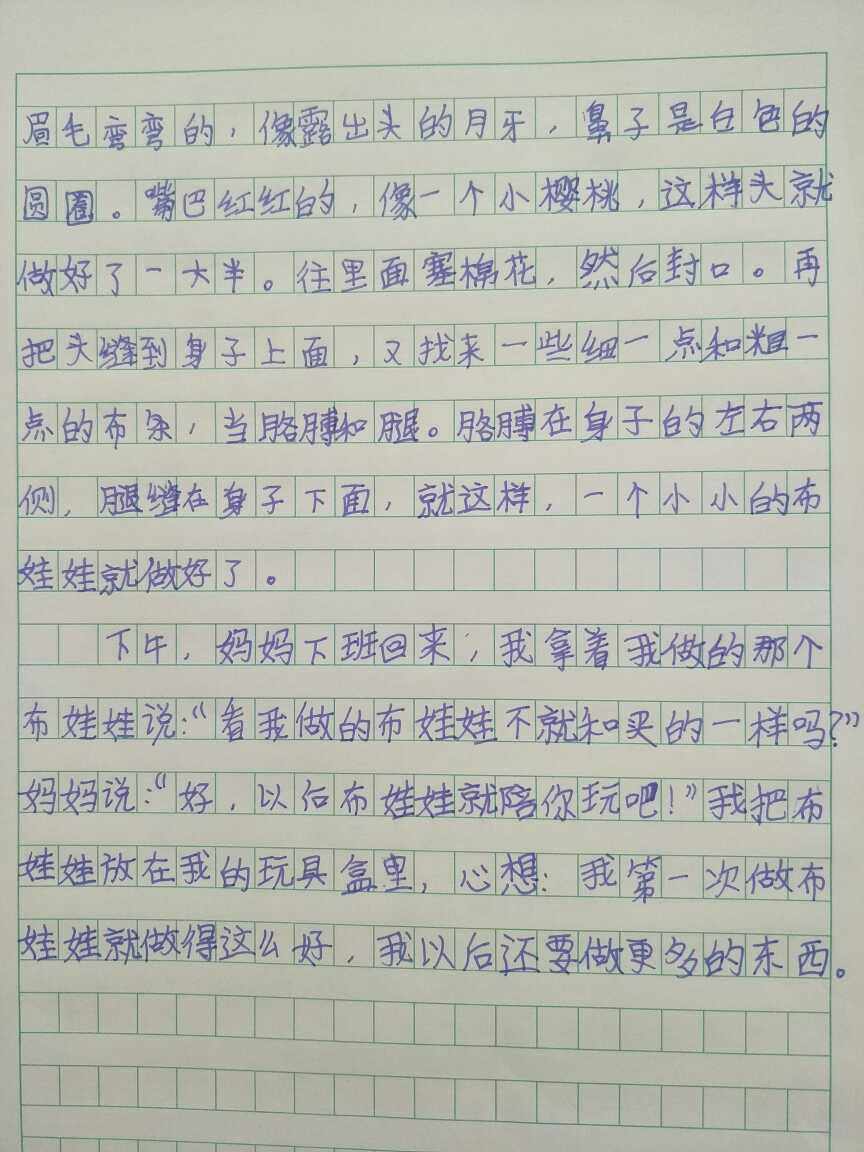 眉毛弯弯的，像露出头的月牙，鼻子是白色的
圆圈。嘴巴红红的，像一个小樱桃，这样头就
做好了一大半。往里面塞棉花，然后封口。再
把头缝到身子上面，又找来一些细一点和粗一
点的布条，当胳膊和腿。胳膊在身子的左右两
侧，腿缝在身子下面，就这样，一个小小的布
娃娃就做好了。
下午，妈妈下班回来，我拿着我做的那个
布娃娃说：“看我做的布娃娃不就和买的一样吗？”
妈妈说：“好，以后布娃娃就陪你玩吧！”我把布
娃娃放在我的玩具盒里，心想：我第一次做布
娃娃就做得这么好，我以后还要做更多的东西。